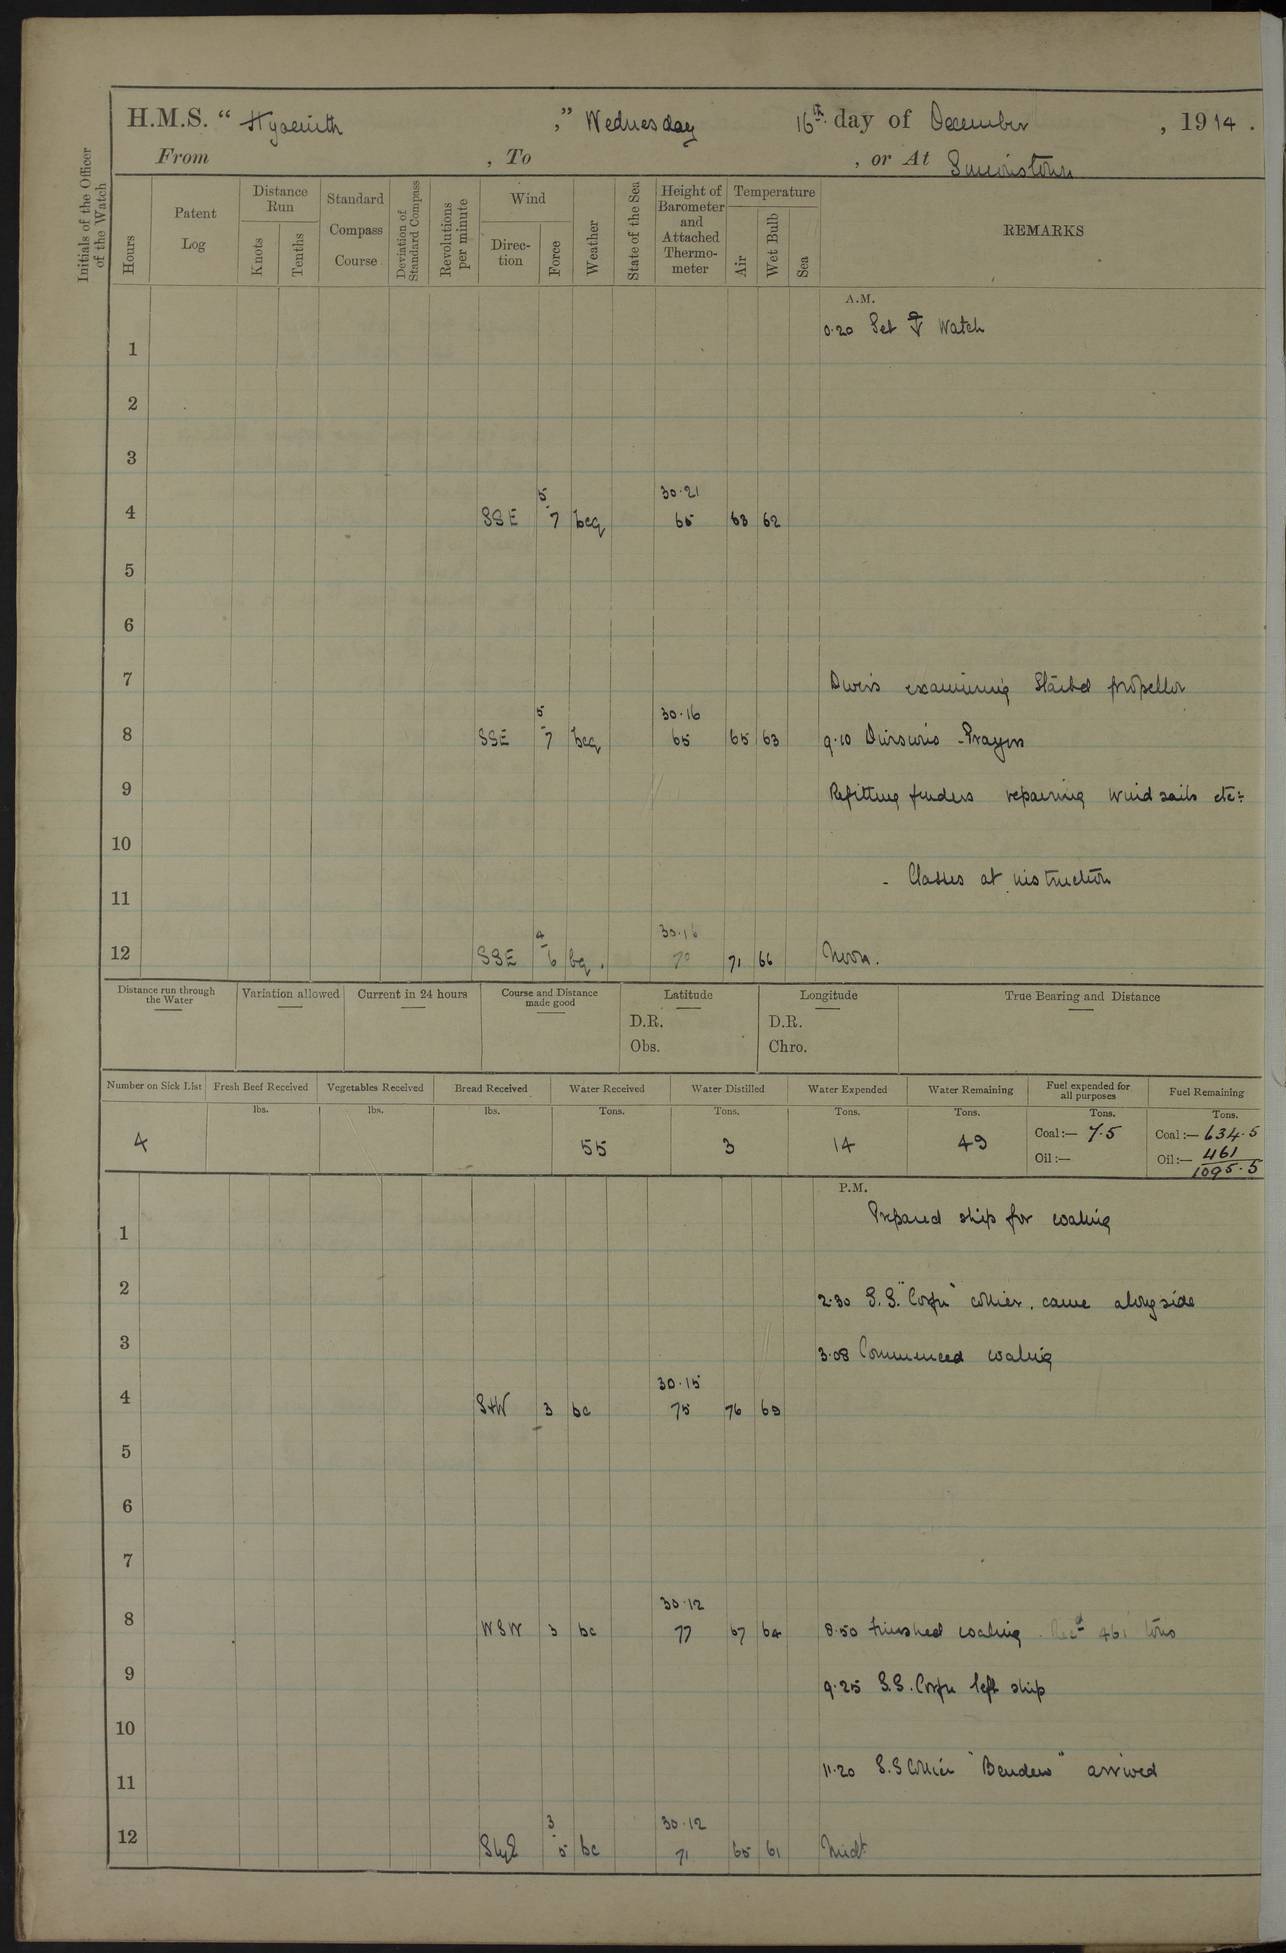 H.M.S. " Hyacinth ," Wednesday 16th day of December , 1914 .
From , To , or At Simonstown
Initials of the Officer of the Watch
Hours
Patent Log
Distance Run
Knots
Tenths
Standard Compass Course
Deviation of Standard Compass
Revolutions per minute
Wind
Direc-tion
Force
Weather
State of the Sea
Height of Barometer and Attached Thermo-meter
Temperature
Air
Wet Bulb
Sea
REMARKS
A.M.
0.20 Set Watch
1
2
3
5 30.21
4 SSE 7 bcq 65 63 62
5
6
7 Divers examining Starbd propellor
5 30.16
8 SSE 7 bcq 65 65 63 9.10 Divisions - Prayers
9 Refitting fenders repairing wind sails etc:
10
- Classes at instruction
11
4 30.16
12 SSE 6 bq. 70 71 66 Noon.
Distance run through the Water
Variation allowed
Current in 24 hours
Course and Distance made good
Latitude
D.R.
Obs.
Longitude
D.R.
Chro.
True Bearing and Distance
Number on Sick List Fresh Beef Received Vegetables Received Bread Received Water Received Water Distilled Water Expended Water Remaining Fuel expended for all purposes Fuel Remaining
lbs. lbs. lbs. Tons. Tons. Tons. Tons. Tons. Tons.
4 55 3 14 49 Coal:— 7.5 Coal:— 634.5
Oil:— Oil:— 461
1095.5
P.M.
Prepared ship for coaling
1
2 2.30 S.S. "Corfu" collier. came alongside
3 3.08 Commenced coaling
30.15
4 S+W 3 bc 75 76 69
5
6
7
30.12
8 WSW 3 bc 77 67 64 8.50 Finished coaling. Recd 461 tons
9 9.25 S.S. Corfu left ship
10
11.20 S.S Collier " " arrived
11
3 30.12
12 SbyE 5 bc 71 65 61 Midt